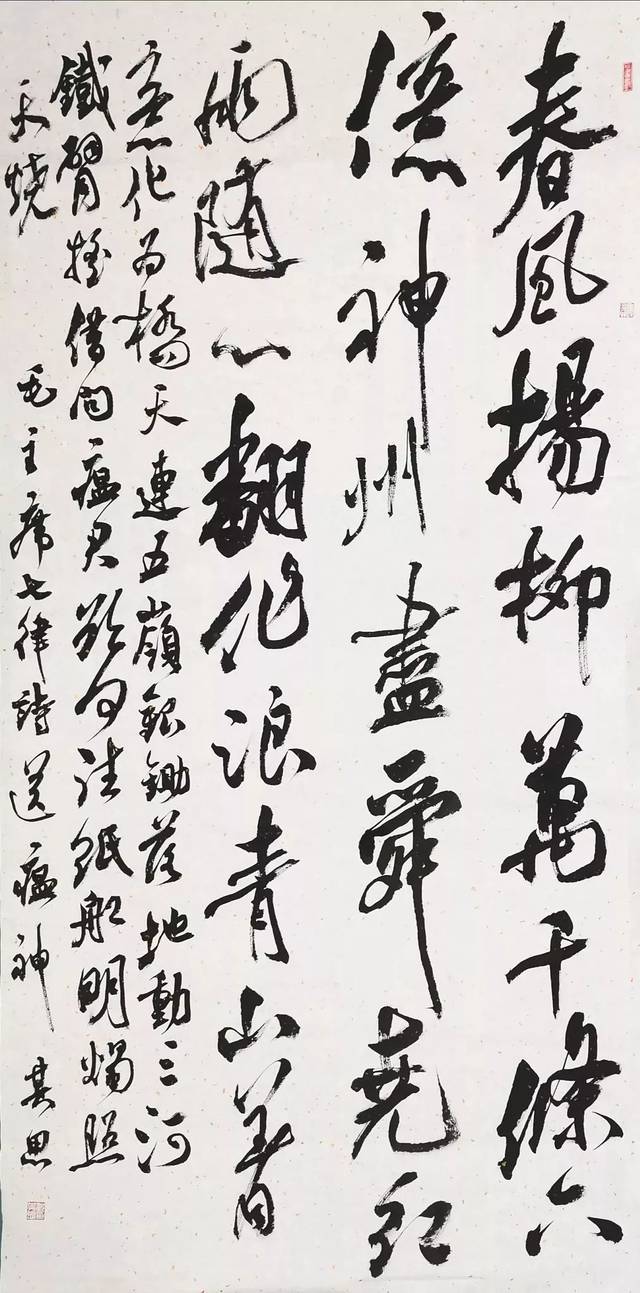 春風揚柳萬千條六
億神州盡舜堯紅
雨隨心翻作浪青山着
意化為橋天連五嶺銀鋤落地動三河
鐵臂搖借問瘟君欲何往紙船明燭照
天燒 毛主席七律詩送瘟神 其思